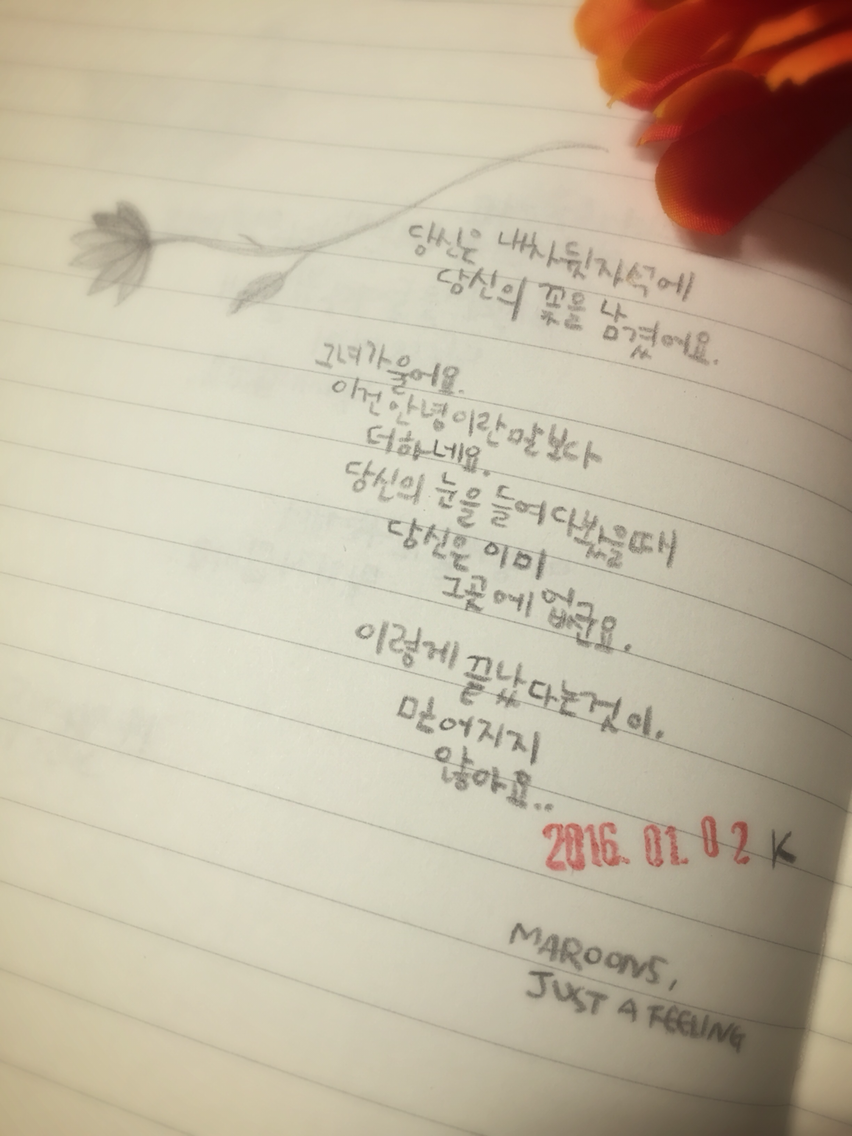 당신은 내차뒷자석에
당신의 꽃을 남겼어요.
그녀가 울어요.
이건 안녕이란 말보다
더하네요.
당신의 눈을 들여다봤을때
당신은 이미
그곳에 없군요.
이렇게 끝났다는것이.
믿어지지
않아요..
2016. 01. 02 K
MAROON5,
JUST A FEELING